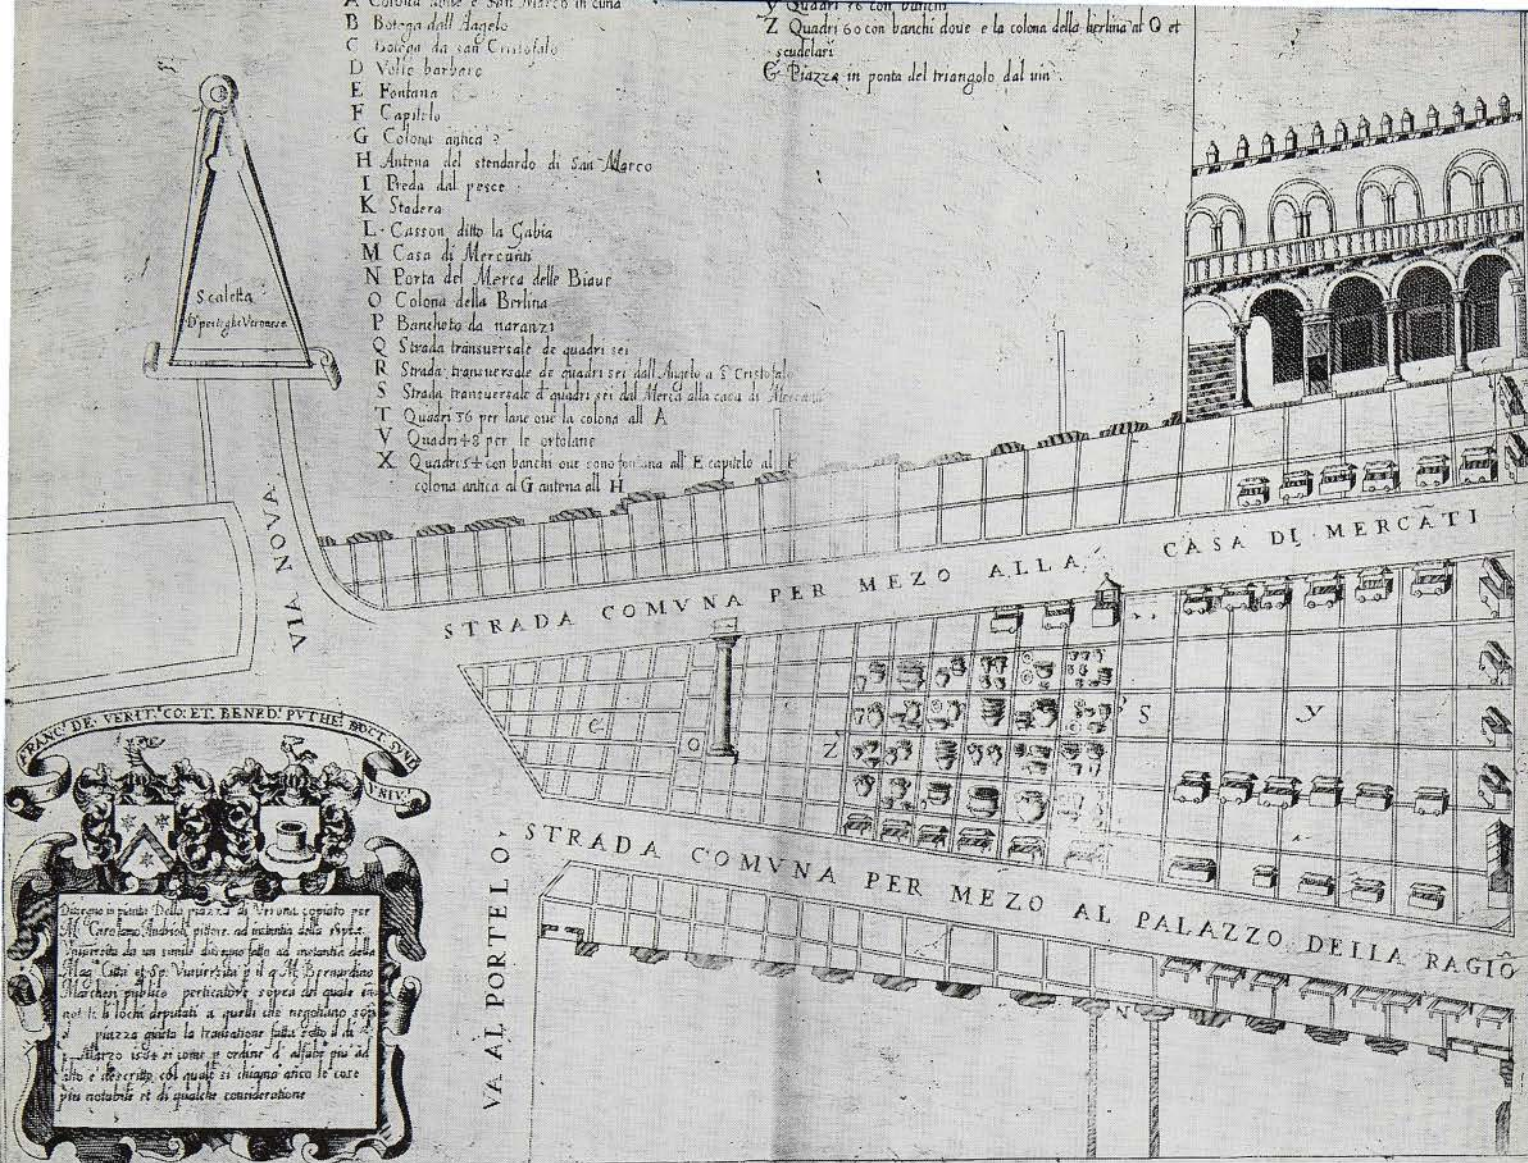 A Colona doue e San Marco in cima
B Botega dall Angelo
C Botega da san Cristofalo
D Volto barbaro
E Fontana
F Capitelo
G Colona antica
H Antena del stendardo di San Marco
I Preda dal pesce
K Stadera
L Casson ditto la Gabia
M Casa di Mercanti
N Porta del Merca delle Biaue
O Colona della Berlina
P Bancheto da naranzi
Q Strada transuersale de quadri sei
R Strada transuersale de quadri sei dall Angelo a S Cristofalo
S Strada transuersale d quadri sei dal Merca alla casa di
T Quadri 56 per lane oue la colona all A
V Quadri 48 per le ortolane
X Quadri 54 con banchi oue sono fontana all E capitelo al F
colona antica al G antena all H
y Quadri 76 con banchi
Z Quadri 60 con banchi doue e la colona della berlina al O et
scudelari
G Piazza in ponta del triangolo dal uin
Scaletta
D pertighe Veronese
VIA NOVA
STRADA COMVNA PER MEZO ALLA CASA DI MERCATI
G
O
Z
S
y
STRADA COMVNA PER MEZO AL PALAZZO DELLA RAGIÕ
VA AL PORTELO
N
FRANC.' DE VERIT.' CO: ET. BENED.' PVTHE.' DOCT. SYND.'
VNIV.'
Dissegno in pianta Della piazza di Verona copiato per
M. pittore ad instantia della
Vniuersita da un simile dissegno fatto ad instantia della
Mag.ca Citta et Sp. Vniuersita p il q M. Bernardino
Marchesi publico perticatore sopra dal quale
li lochi deputati a quelli che negotiano
piazza giusto la transatione fatta sotto il di
Marzo 1584 si come p ordine d alfabe piu ad
alto e descritto col quale si chiama anco le cose
piu notabile et di qualche consideratione